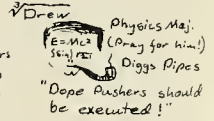 ∛Drew
Physics Maj.
E=Mc²
(Pray for him!)
Diggs Pipes
"Dope Pushers should
be executed!"